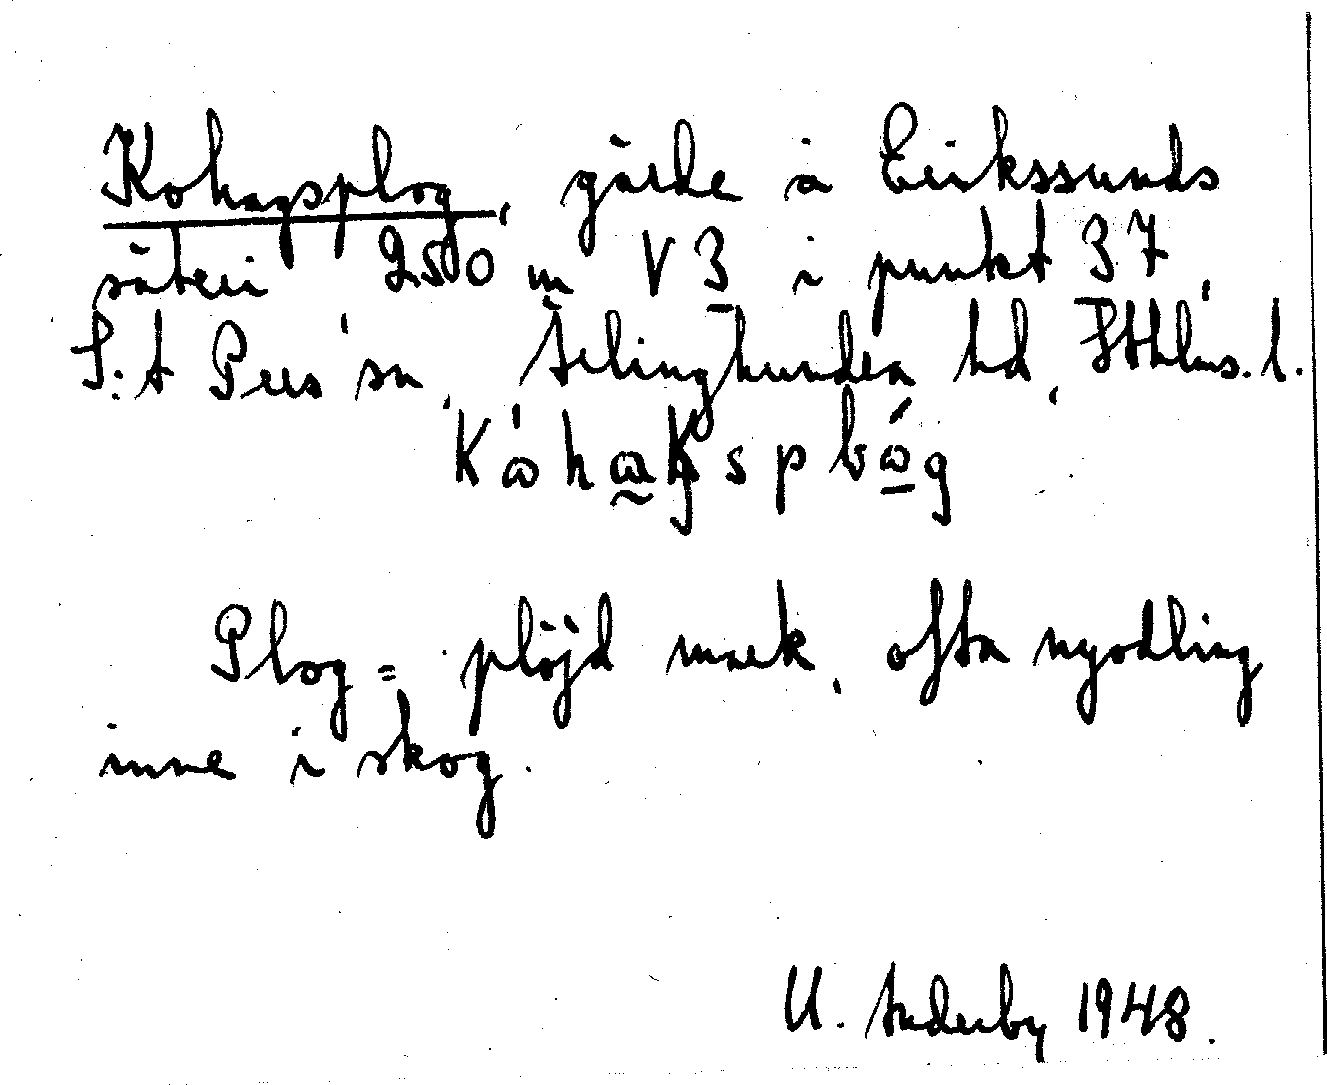 Kohagsplog, gärde å Erikssunds
säteri 250 m V 3 i punkt 37,
S:t Pers sn, Ärlinghundra hd, Sthlms. l.
Plog = plöjd mark, ofta nyodling
inne i skog.
U. 1948.